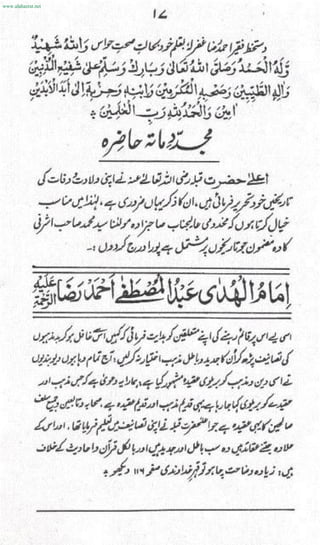 www.alahazrat.net
۱۷
دستخط فقیر احمد رضا غفرلہ بقلم خود بحالت صحت حواس واللہ شہید
ولہ الحمد وصلی اللہ تعالیٰ وبارک وسلم علیٰ شفیع المذنبین
والہ الطیبین وصحبہ المکرمین وابنہ وحزبہ الی ابد الابدین
امین والحمد للہ رب العلمین
مجدد مائۃ حاضرہ
اعلےٰ حضرت قبلہ رضی اللہ تعالےٰ عنہ نے اپنی ولادت و وفات کی
تاریخیں خود تحریر فرمائی ہیں، ان کا ذکر یہاں ضروری ہے، لہٰذا میں مناسب
خیال کرتا ہوں کہ مخدومی عالیجناب صاحبزادہ مولٰنا سید محمد صاحب اشرفی
کا وہ مضمون جو تاریخوں پر مشتمل ہے پورا درج کر دوں :۔
امام الھدٰی عبد المصطفٰے احمد رضا علیہ الرحمۃ
اسی لیے اس پر قائم رہنے کی اپنے متعلقین کو ہدایت فرمائی کہ کہیں اس سے غافل ہو کر بد مذہبوں
کی تصانیف پڑھ کر ان کا جدید و باطل مذہب اختیار نہ کر لیں، آج تمام وہابیوں دیوبندیوں
نے اسی دین و مذہب کو بریلوی عقیدہ مشہور کیا ہے، ہمارا یہ دعویٰ ہے کہ جس مذہب اور
عقیدے کو بریلوی کہا جا رہا ہے یہی قدیم مذہب اور قدیم عقیدہ ہے، صحابہ و تابعین و جمیع سلف
صالحین کا یہی عقیدہ ہے جو اعلٰحضرت قبلہ نے اپنی تصانیف میں تعلیم فرمایا تھا، اور اس کے
علاوہ جتنے عقائد ہیں وہ سب باطل اور جدید ہیں اور بالکل قرآن و احادیث کے خلاف
ہیں، زیادہ وضاحت چاہو تو قہر خداوندی صفحہ ۱۱۶ دیکھو